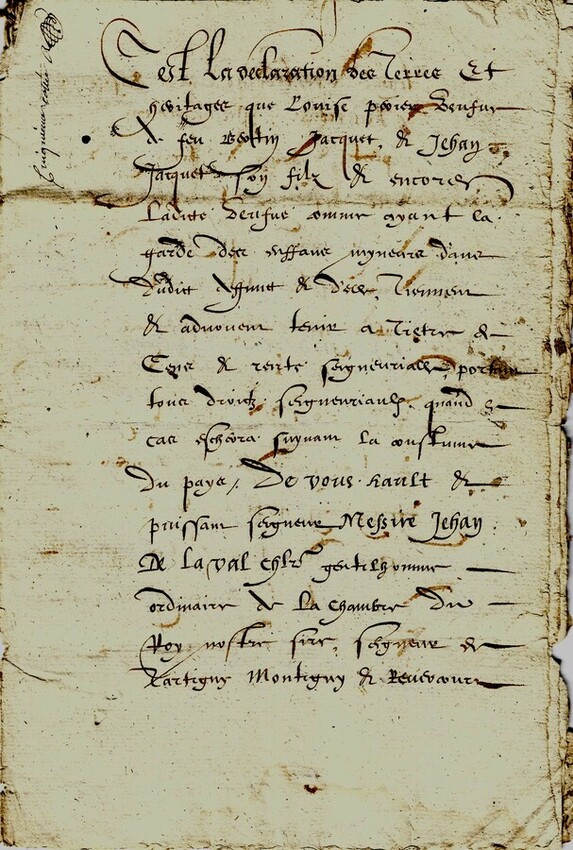 C'est la declaration des terres et
heritages que Louise perier veufue
de feu Bertin Jacquet, & Jehan
Jacquet son filz & encores
ladite veufue comme ayant la
garde des enffans myneurs dans
dudict deffunct & d'elle, tiennent
& advouent tenir a tiltre de
Cens & rente seigneurialle portant
tous droictz seigneuriaulx quand
cas escherra suyvant la coustume
du pays, De vous hault &
puissant seigneur Messire Jehan
De laval chlr gentilhomme
ordinaire de la chambre du
Roy nostre sire, seigneur de
Tartigny Montigny &